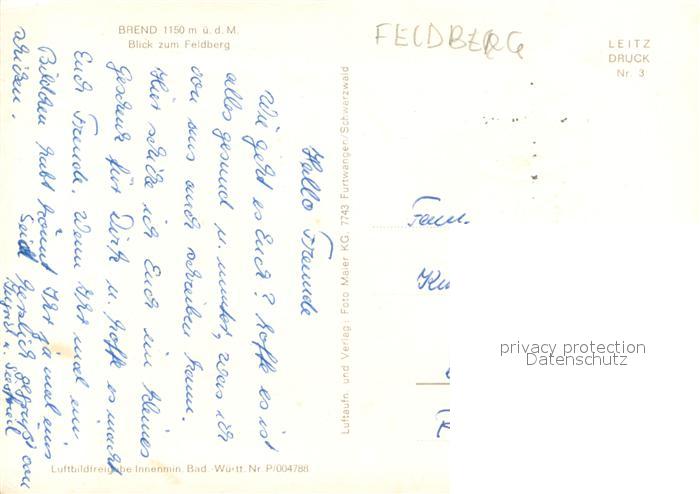 BREND 1150 m ü. d. M.
Blick zum Feldberg
FELDBERG
LEITZ
DRUCK
Nr. 3
Hallo Freunde
Wie geht es Euch? hoffe es ist
alles gesund u. munter, was ich
von uns auch schreiben kann.
Hier schicke ich Euch ein kleines
Geschenk für Dirk u. hoffe es macht
Euch Freude. Wenn Ihr mal ein
Bildchen habt könnt Ihr ja mal eins
schicken.
Seid herzlich gegrüßt von
u.
Luftaufn. und Verlag: Foto Maier KG. 7743 Furtwangen/Schwarzwald
Fam.
privacy protection
Datenschutz
Luftbildfreigabe Innenmin. Bad.-Württ. Nr. P/004788